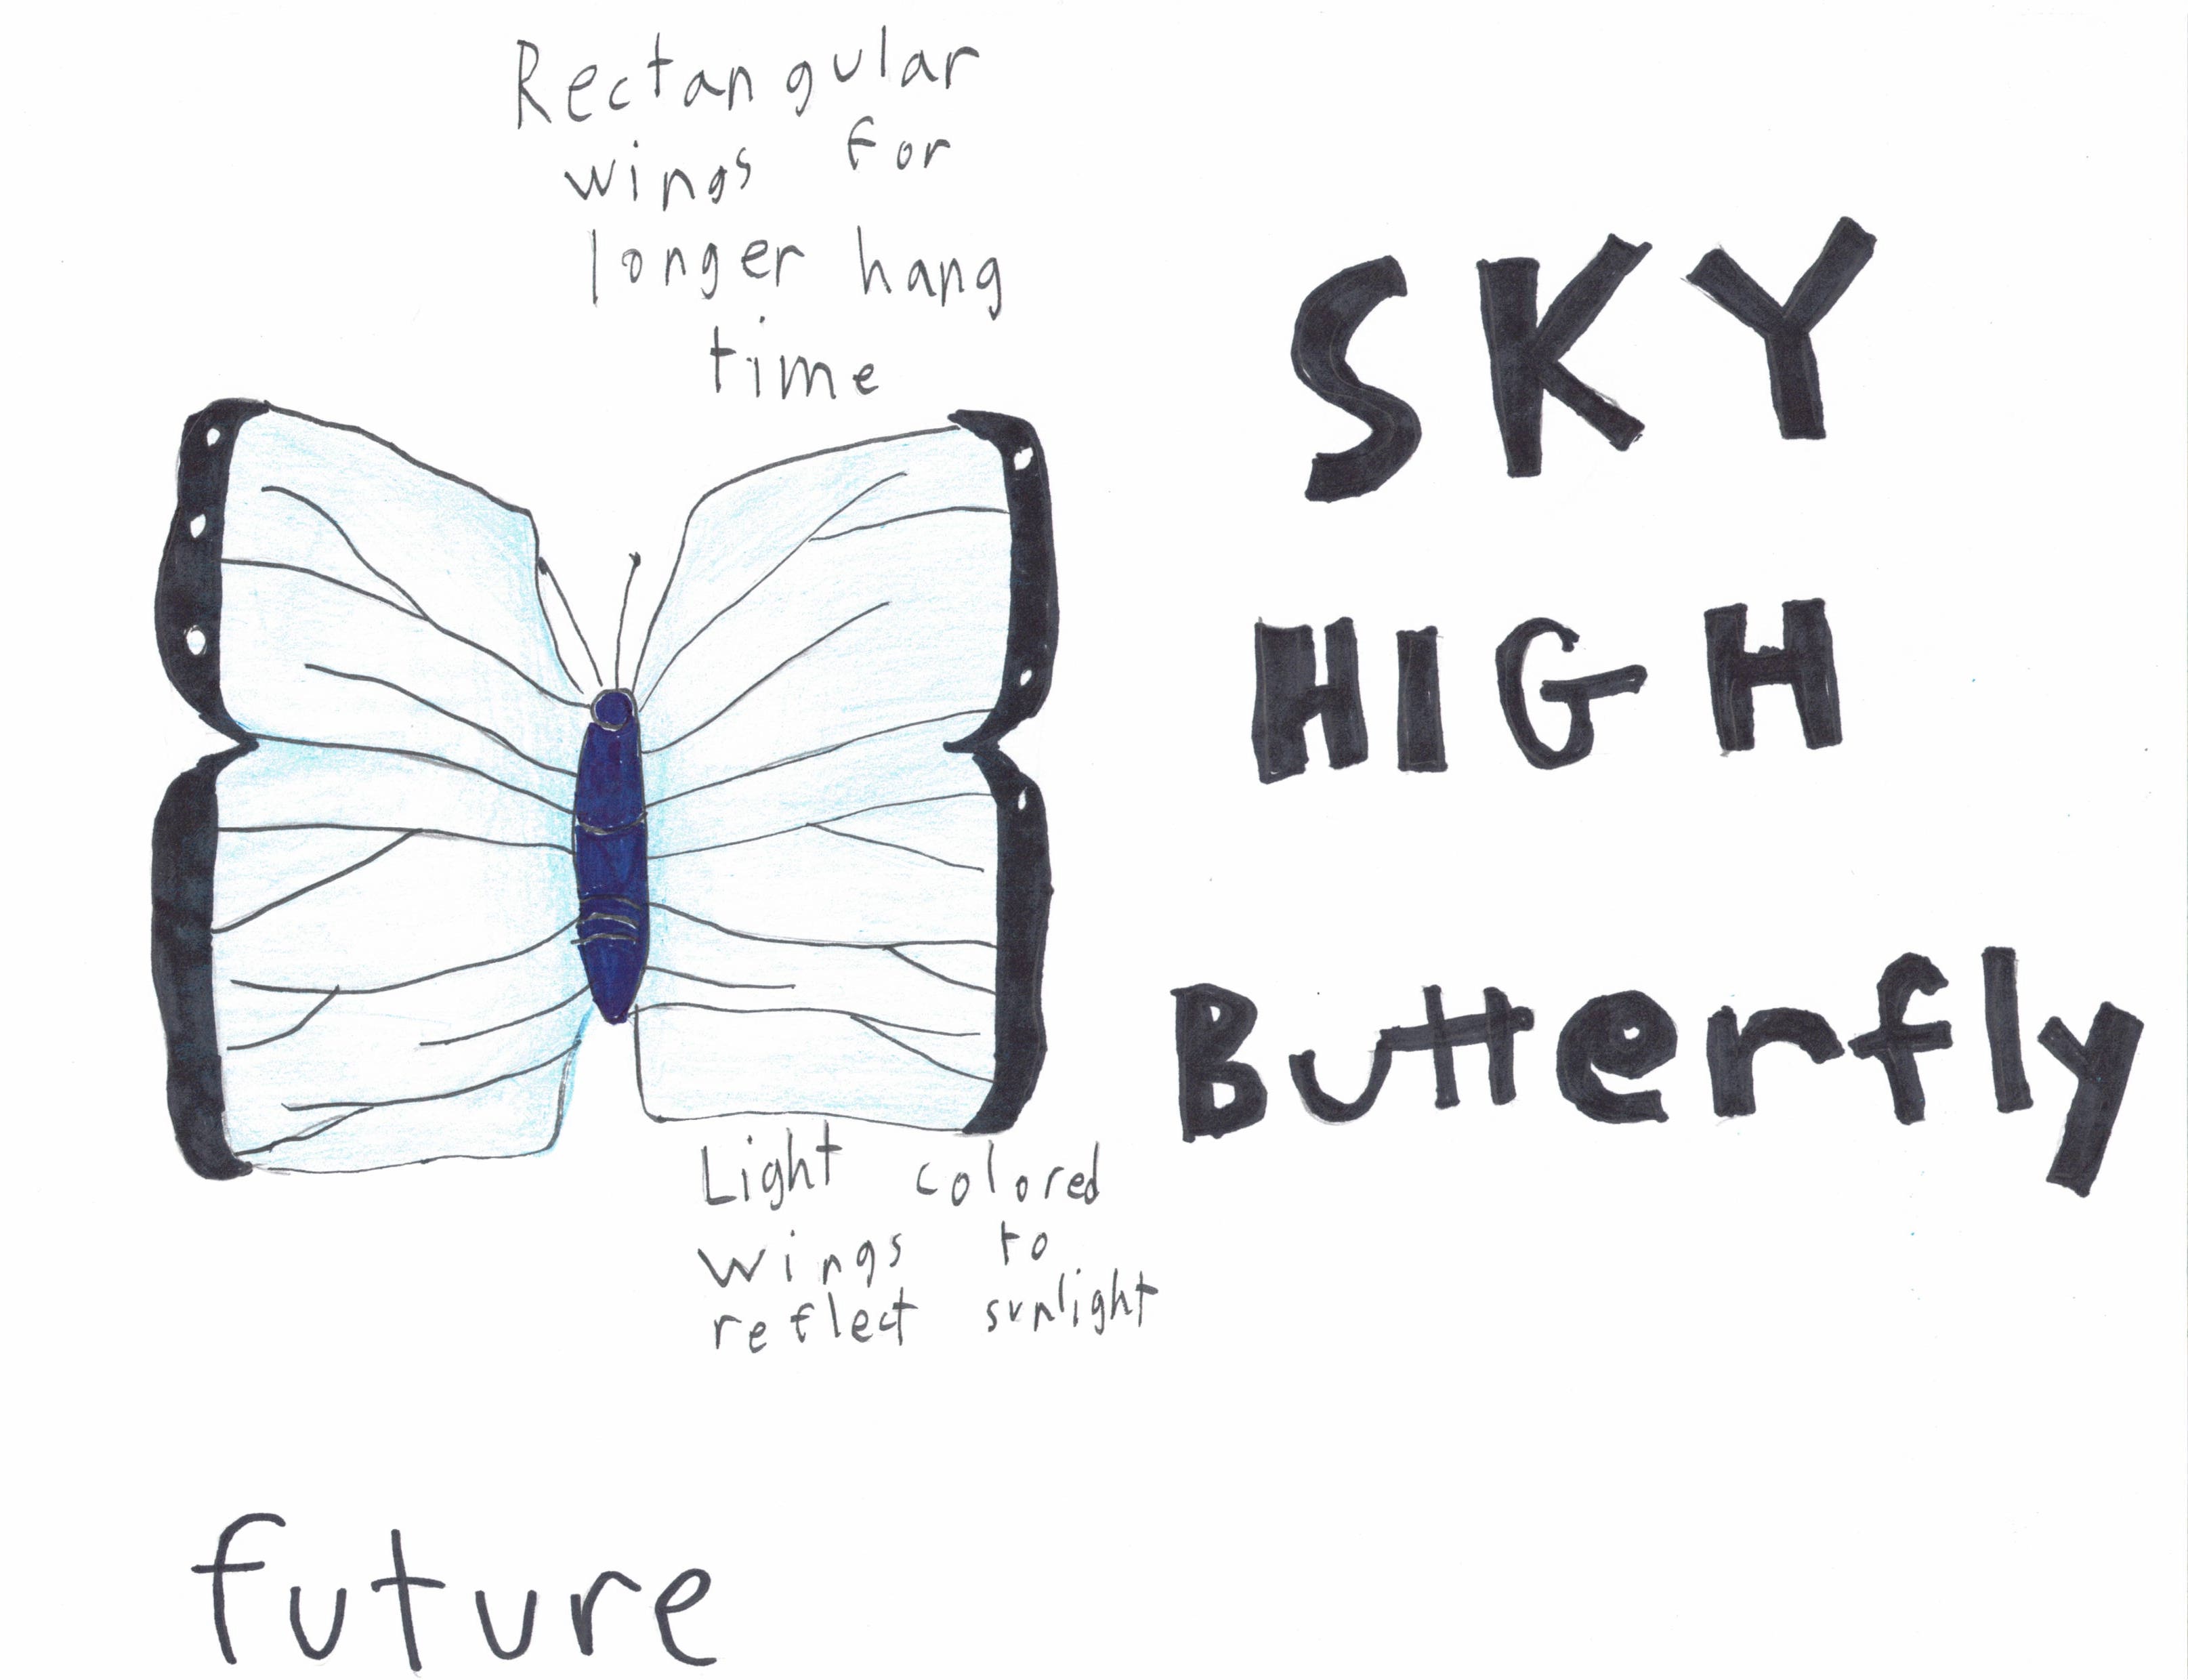 Rectangular
wings for
longer hang
time
SKY
HIGH
Butterfly
Light colored
wings to
reflect sunlight
future